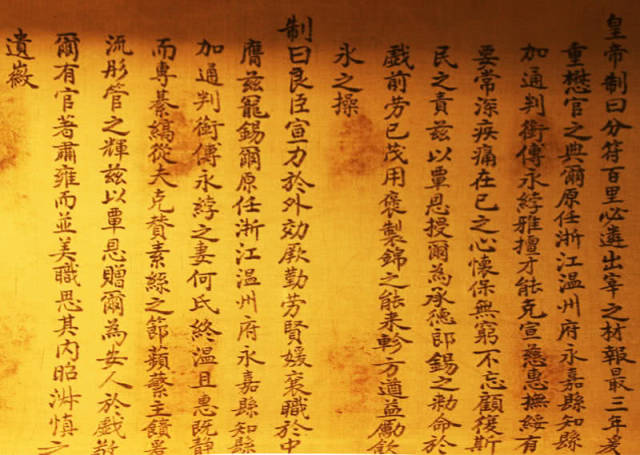 皇帝制曰分符百里必遴出宰之材報最三年爰
重懋官之典爾原任浙江温州府永嘉縣知縣
加通判銜傅永綍雅擅才能克宣慈惠撫綏有
要常深疾痛在已之心懷保無窮不忘顧復斯
民之責兹以覃恩授爾為承德郎錫之勅命於
戲前勞已茂用褒製錦之能来軫方遒益勵飲
氷之操
制曰良臣宣力於外効厥勤勞賢媛襄職於中
膺兹寵錫爾原任浙江温州府永嘉縣知縣
加通判銜傅永綍之妻何氏終温且惠既静
而專綦縞從夫克賛素絲之節蘋蘩主饋
流彤管之輝兹以覃恩贈爾為安人於戲敬
爾有官著肅雍而並美職思其内昭淋慎之
遺徽